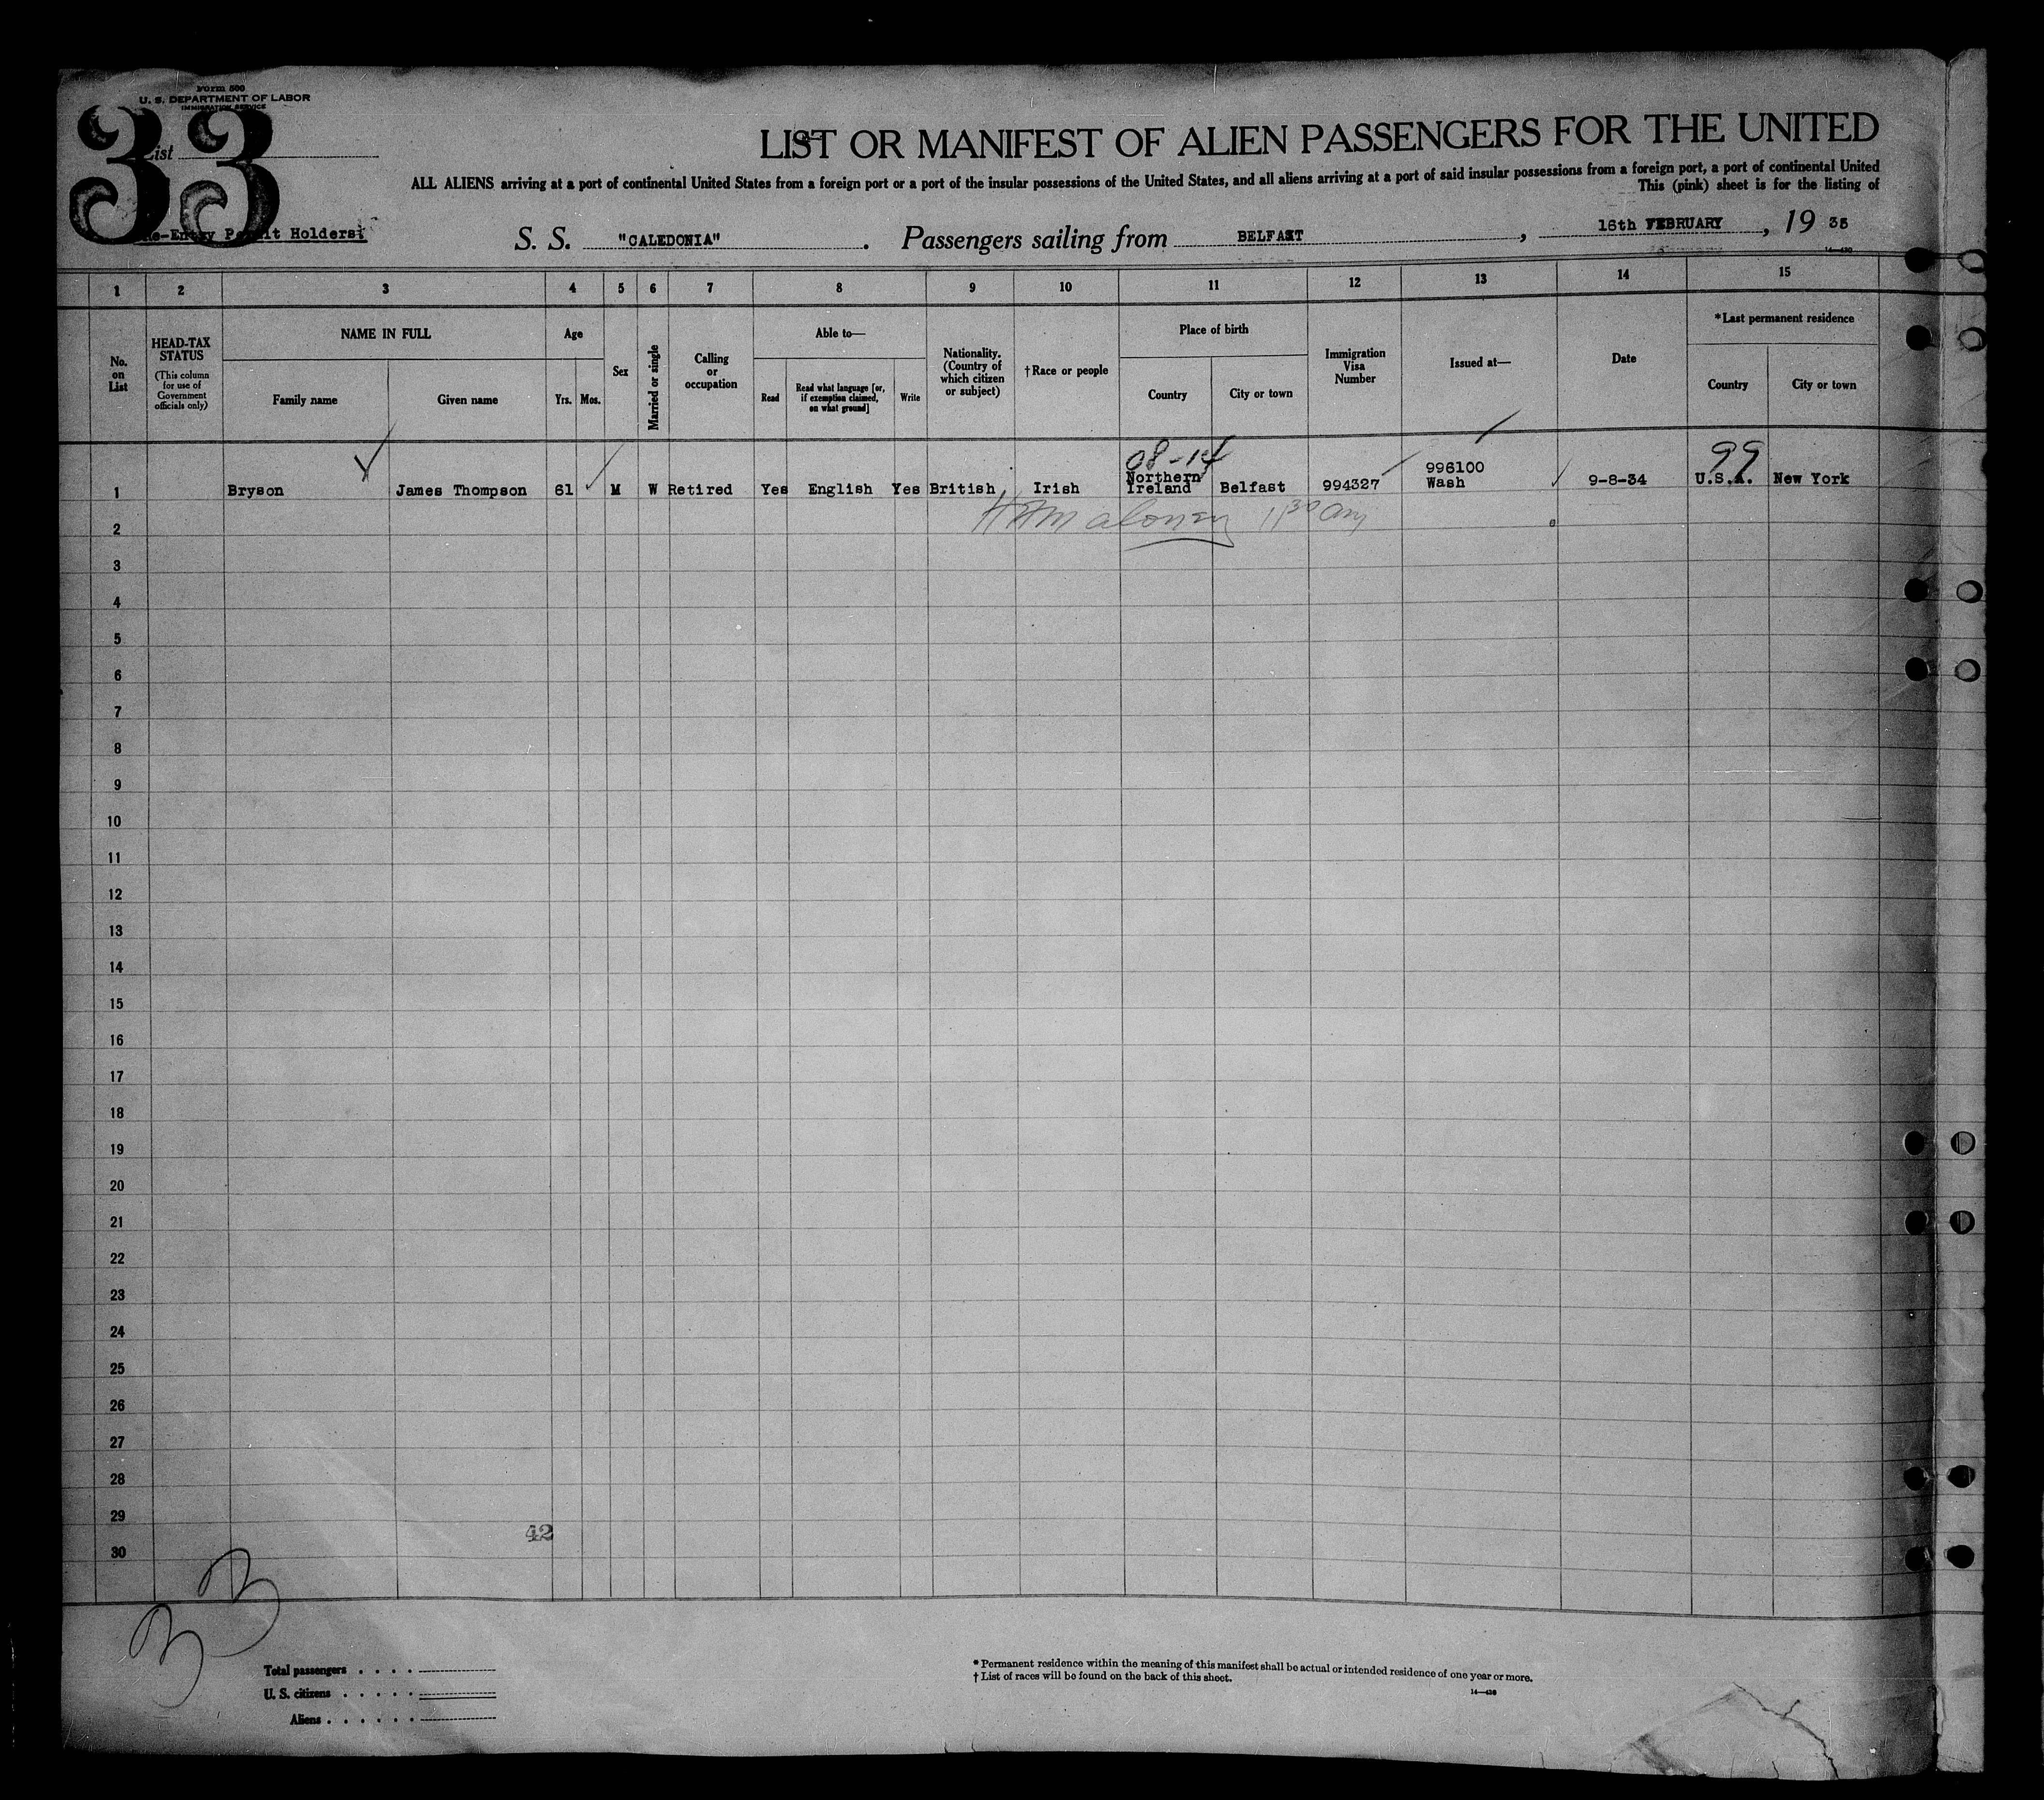 Form 500
U. S. DEPARTMENT OF LABOR
IMMIGRATION SERVICE
33
List
LIST OR MANIFEST OF ALIEN PASSENGERS FOR THE UNITED
ALL ALIENS arriving at a port of continental United States from a foreign port or a port of the insular possessions of the United States, and all aliens arriving at a port of said insular possessions from a foreign port, a port of continental United
This (pink) sheet is for the listing of
Re-Entry Permit Holders:
S. S. "CALEDONIA". Passengers sailing from BELFAST, 16th FEBRUARY, 19 35
14—430
1 2 3 4 5 6 7 8 9 10 11 12 13 14 15
No. on List
HEAD-TAX STATUS
(This column for use of Government officials only)
NAME IN FULL
Family name Given name
Age
Yrs. Mos.
Sex
Married or single
Calling or occupation
Able to—
Read Read what language [or, if exemption claimed, on what ground] Write
Nationality. (Country of which citizen or subject)
†Race or people
Place of birth
Country City or town
Immigration Visa Number
Issued at—
Date
*Last permanent residence
Country City or town
08-14 99
1 Bryson James Thompson 61 M W Retired Yes English Yes British Irish Northern Ireland Belfast 994327 996100 Wash 9-8-34 U.S.A. New York
2 Maloney 11 30 am
3
4
5
6
7
8
9
10
11
12
13
14
15
16
17
18
19
20
21
22
23
24
25
26
27
28
29
42
30
33
Total passengers . . . .
U. S. citizens . . . . .
Aliens . . . . . .
* Permanent residence within the meaning of this manifest shall be actual or intended residence of one year or more.
† List of races will be found on the back of this sheet.
14—430